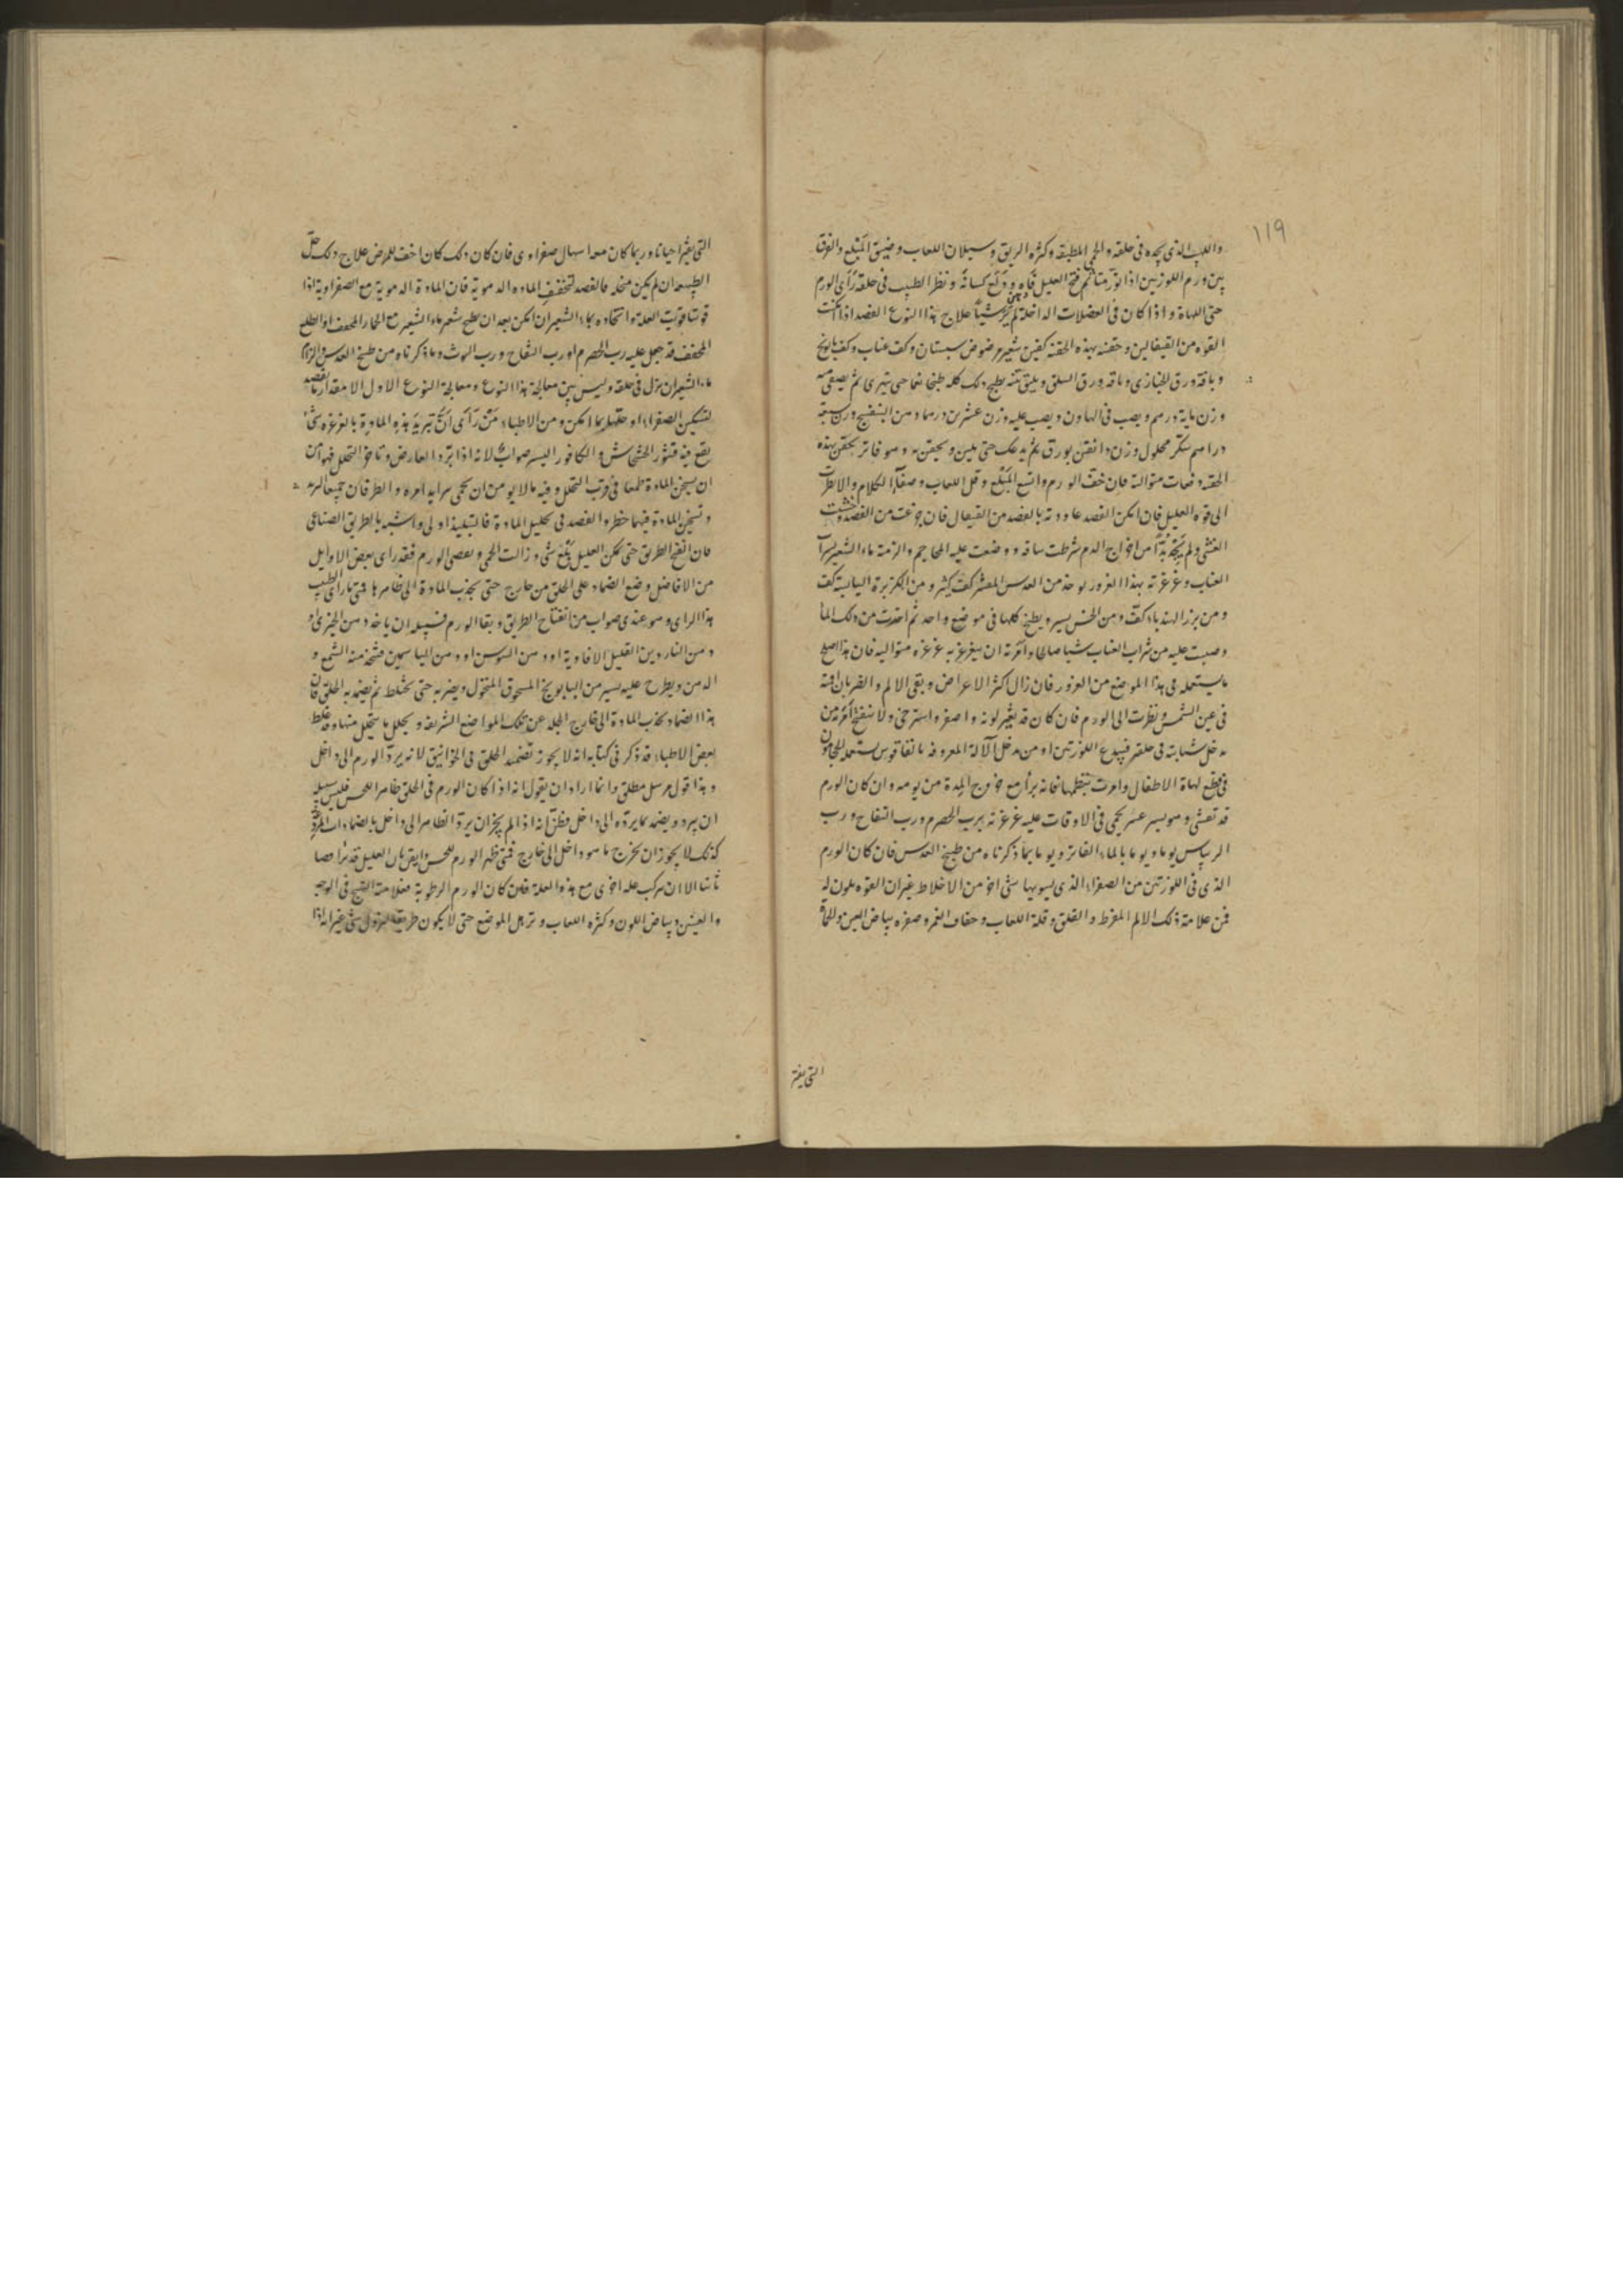 ١١٩
واللهيب الذى يجده فى حلقه والحمى المطبقه وكثره الريق وسيلان اللعاب وضيق المبلع والفرق
بين ورم اللوزتين اذا تورمتا ثم فتح العليل فاه ودلع لسانه ونظر الطبيب فى حلقه رأى الورم
حتى اللهاة واذا كان فى العضلات الداخلة لم ير شيأ علاج هذا النوع الفصد اذا امكنت
القوه من القيفالين وحقنه بهذه الحقنه كفين شعير مرضوض سبستان وكف عناب وكف بابونج
وباقة ورق الخبازى وباقه ورق السلق ويلقى يطبخ ذلك كله طبخا ناعما حتى يتهرى ثم يصفى منه
وزن مايه درهم ويصب فى الهاون ويصب عليه وزن عشرين درهما دهن البنفسج وزن سبعة
دراهم سكر محلول وزن دانقين بورق ثم يدعك حتى يلين ويحقن به وهو فاتر يحقن بهذه
الحقنه دفعات متواليه فان خف الورم واتسع المبلع وقل اللعاب وصفا الكلام والا نظرت
الى قوه العليل فان امكن الفصد عاودته بالفصد من القيفال فان جزعت من الفصد وخشيت
الغشى ولم تجد بداً من اخراج الدم شرطت ساقه ووضعت عليه المحاجم والزمته ماء الشعير بشراب
العناب وغرغرته بهذا الغرور يوخذ من العدس المقشر كف كبير ومن الكزبرة اليابسة كف
ومن بزر الهندباء كف ومن الخس يسير ويطبخ كلها فى موضع واحد ثم اخذت من ذلك الماء
وصببت عليه من شراب العناب شيأ صالحا وامرته ان يتغرغر به غرغره متواليه فان هذا اصلح
ما يستعمله فى هذا الموضع من الغرور فان زال اكثر الاعراض وبقى الالم والضربان اقمته
فى عين الشمس ونظرت الى الورم فان كان قد تغير لونه واصفر واسترخى ولا ينفتح امرته من
يدخل سبابته فى حلقه فيبدع اللوزتين او من يدخل الآلة المعروفه يستعمله الحجامون
فى قطع لهاة الاطفال وامرت ببطها فانه يبرأ مع خروج المدة من يومه وان كان الورم
قد تفشى وهو يسير عسر يحمى فى الاوقات عليه غرغرته برب الحصرم ورب التفاح ورب
الريباس يوما ويوما بالماء الفاتر ويوما بما ذكرناه من طبيخ العدس فان كان الورم
الذى فى اللوزتين من الصفراء الذى يسوبها شئ اخر من الاخلاط غير ان القوه يكون له
فمن علامة ذلك الالم المفرط والقلق وقلة اللعاب وجفاف الفم وصفره بياض العين والحمى
التى يفتر
التى يفتر احيانا وربما كان معه اسهال صفراوى فان كان ذلك كان اخف للمرض علاج ذلك حل
الطبيعه ان لم يكن منحله فالفصد لتخفف الماده الدمويه فان المادة الدمويه مع الصفراويه اذا
قويتا قويت العلة واتخاذه بماء الشعير ان امكن بعد ان يطبخ شعير ماء الشعير مع الخيار المجفف او الطلع
المجفف قد جعل عليه رب الحصرم او رب التفاح ورب التوث وما ذكرناه من طبيخ العدس والزام
ماء الشعير ان نزل فى حلقه وليس بين معالجة هذا النوع ومعالجة النوع الاول الا مقدار ما يقصد
لتسكين الصفراء او حلها بما امكن ومن الاطباء من رأى ان تبريد هذه المادة بالغرغره بشئ
يقع فيه قشور الخشخاش والكافور اليسير صواباً لانه اذا برد العارض وتاخر التحلل فهو امن
ان يسخن المادة طمعا فى قرب التحلل وفيه ما لا يومن ان يحمى سراية امره والطرفان جميعا التبريد
وتسخين المادة فيهما خطر والفصد فى تحليل المادة فالتبليد اولى واشبه بالطريق الصناعى
فان انفتح الطريق حتى يمكن العليل يبلع شئ وزالت الحمى وبعض الورم فقد رأى بعض الاوايل
من الافاضل وضع الضماد على الحلق من خارج حتى يجذب المادة الى ظاهرها فمتى ما رأى الطبيب
هذا الراى وهو عندى صواب من انفتاح الطريق وبقا الورم فسبيله ان ياخذ دهن الخيرى او
دهن الناردين القليل الافاويه او دهن السوسن او دهن الياسمين فيتخذ منه الشمع و
الدهن ويطرح عليه يسير من البابونج المسحوق المنخول ويضربه حتى يختلط ثم يضمد به الحلق فان
هذا الضماد يجذب المادة الى خارج الجلد عن تلك المواضع الشريفه ويحلل ما يتحلل منها وقد غلط
بعض الاطباء قد ذكر فى كتابه انه لا يجوز تضميد الحلق فى الخوانيق لانه يرد الورم الى داخل
وهذا قول مرسل مطلق وانما اراد ان يقول انه اذا كان الورم فى الحلق ظاهرا للحس فليس سبيله
ان يبرد ويضمد بما يرده الى داخل فظن انه اذا لم يجز ان يرد الظاهر الى داخل بالضمادات المبردة
كذلك لا يجوز ان يخرج ما هو داخل الى خارج فمتى ظهر الورم للحس وايقن بان العليل قد برأ
تاما الا ان تركب عله اخرى مع هذه العلة فان كان الورم الرطوبة فعلامته التهيج فى الوجه
والعينين وبياض اللون وكثره اللعاب وترهل الموضع حتى لا يكون طريقه لنزول شئ غير انه اذا